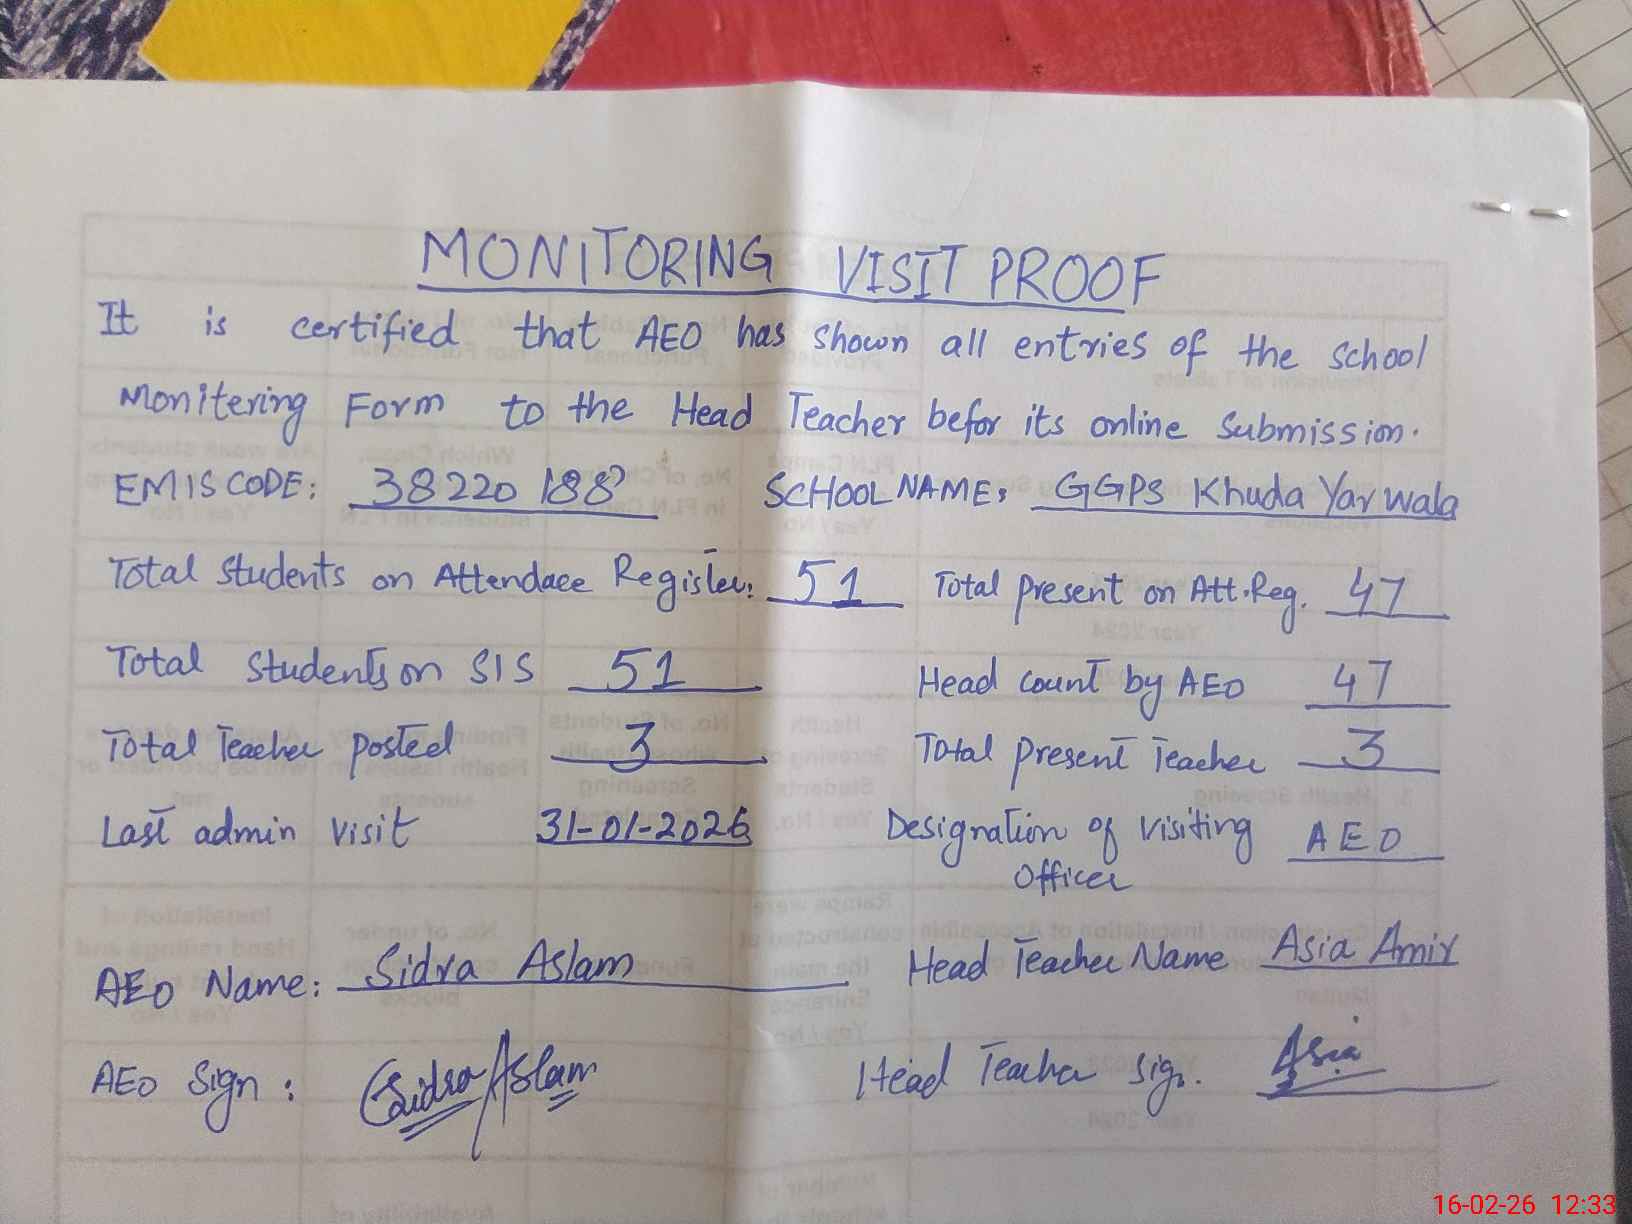 MONITORING VISIT PROOF
It is certified that AEO has shown all entries of the school
Monitering Form to the Head Teacher befor its online submission.
EMIS CODE: 38220188 SCHOOL NAME: GGPS Khuda Yar wala
Total students on Attendace Register: 51 Total present on Att.Reg. 47
Total students on SIS 51 Head count by AEO 47
Total Teacher posted 3 Total present Teacher 3
Last admin visit 31-01-2026 Designation of visiting AEO
Officer
AEO Name: Sidra Aslam Head Teacher Name Asia Amir
AEO Sign: Sidra Aslam Head Teacher sign. Asia
16-02-26 12:33